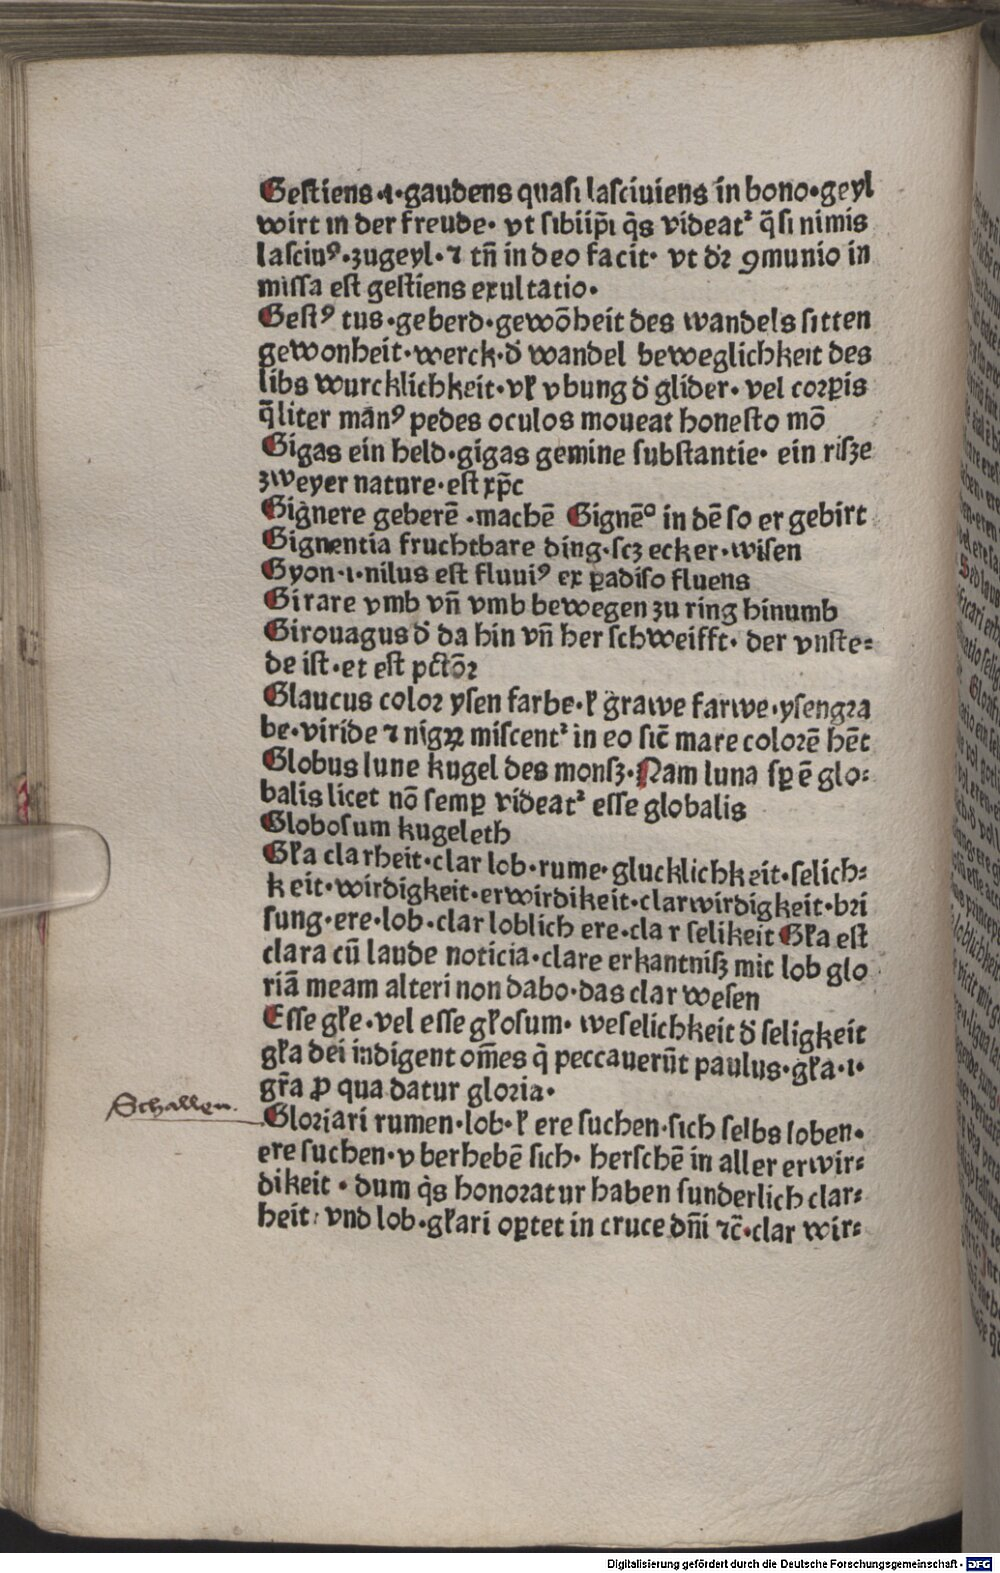 Gestiens ·i· gaudens quasi lasciuiens in bono·geyl
wirt in der freude· vt sibiip̄i q̄s videatᷣ q̄si nimis
lasciuꝰ·zugeyl·⁊ tn̄ in deo facit· vt dr̄ ꝯmunio in
missa est gestiens exultatio·
Gestꝰ tus·geberd·gewōheit des wandels sitten
gewonheit·werck·d̄ wandel beweglichkeit des
libs wurcklichkeit·vl̛ vbung d̄ glider· vel corꝑis
q̄liter manꝰ pedes oculos moueat honesto mō
Gigas ein held·gigas gemine substantie· ein risze
zweyer nature·est xp̄c
Gignere geberē ·machē Gignēº in dē so er gebirt
Gignentia fruchtbare ding·scz ecker·wisen
Gyon·i·nilus est fluuiꝰ ex ꝑadiso fluens
Girare vmb vn̄ vmb bewegen zu ring hinumb
Girouagus d̄ da hin vn̄ her schweifft· der vnste⸗
de ist·et est pctōꝝ
Glaucus color ysen farbe·l̛ grawe farwe·ysengra
be·viride ⁊ nigꝝ miscentᷣ in eo sic̄ mare colorē hēt
Globus lune kugel des monsz·Nam luna sꝑ ē glo⸗
balis licet nō semꝑ videatᷣ esse globalis
Globosum kugeleth
Gl̛a clarheit·clar lob·rume·glucklichkeit·selich⸗
keit·wirdigkeit·erwirdikeit·clarwirdigkeit·bri
sung·ere·lob·clar loblich ere·clar selikeit Gl̛a est
clara cū laude noticia·clare erkantnisz mit lob glo
riā meam alteri non dabo·das clar wesen
Esse gl̛e·vel esse gl̛osum· weselichkeit d̄ seligkeit
gl̛a dei indigent om̄es q̄ peccauerūt paulus·gl̛a·i·
gr̄a ꝓ qua datur gloria·
Schallen.
Gloriari rumen·lob·l̛ ere suchen·sich selbs loben·
ere suchen·vberhebē sich· herschē in aller erwir⸗
dikeit· dum q̄s honoratur haben sunderlich clar⸗
heit: vnd lob·gl̛ari oꝑtet in cruce dn̄i ⁊c̄·clar wir⸗
Digitalisierung gefördert durch die Deutsche Forschungsgemeinschaft - DFG